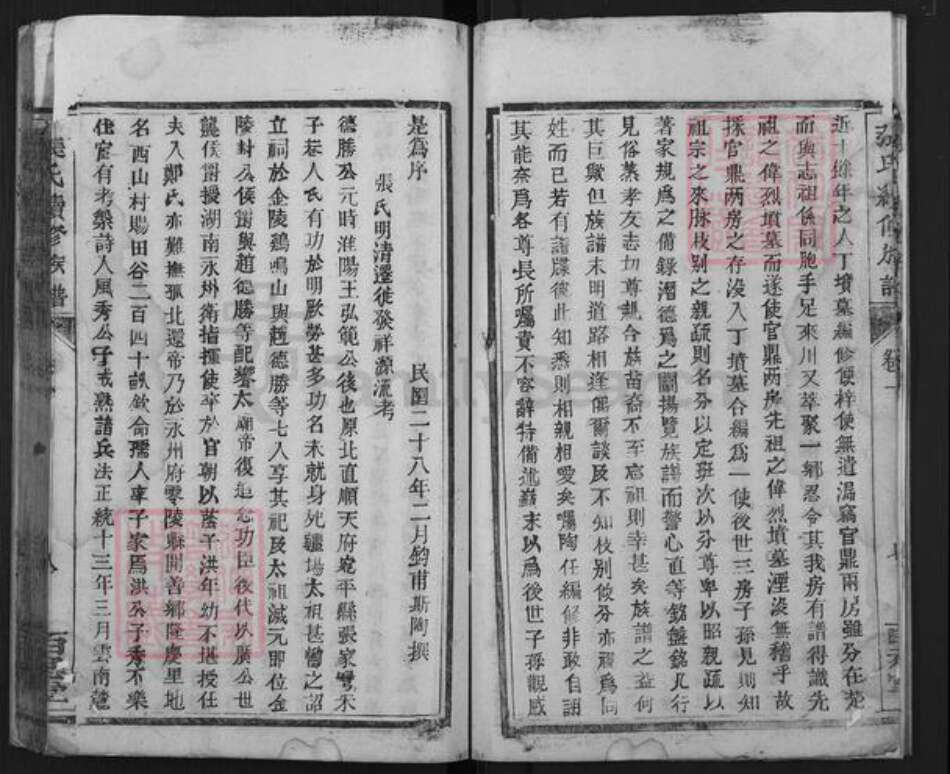 近十餘年之人丁墳墓編修便梓使無遺漏竊官鼎兩房雖分在楚
而與志祖係同胞手足來川又萃聚一鄉忍令其我房有譜得識先
祖之偉烈墳墓而遂使官鼎两房先祖之偉烈墳墓湮沒無稽乎故
採官鼎两房之存没入丁墳墓合編爲一使後世三房子孫見則知
祖宗之來脉枝别之親疏則名分以定班次以分尊卑以昭親疏以
著家規爲之備錄潛德爲之闡揚覽族譜而警心直等銘盤銘几行
見俗蒸孝友志切尊親合族苗裔不至忘祖則幸甚矣族譜之益何
其巨歟但族譜未明道路相逢偶爾談及不知枝别候分亦視爲同
姓而已若有譜牒彼此知悉則相親相愛矣囑陶任編修非敢自謂
其能奈爲各尊長所囑責不容辭特備述巔末以爲後世子孫觀感
是為序
民國二十八年二月鈞甫斯陶撰
張氏明清遷徙發祥源流考
德勝公元時淮陽王弘範公後也原北直順天府 平縣張家灣朱
子巷人氏有功於明厥勞甚多功名未就身死疆場太祖甚嘗之詔
立祠於金陵鷄鳴山與趙德勝等七人享其祀及太祖滅元即位金
陵封公侯爵與趙德勝等配饗太廟帝復追念功臣後代以廣公世
襲侯爵授湖南永州衛指揮使卒於官朝以蔭子洪年幼不堪授任
夫入鄭氏亦難撫孤北還帝乃於永州府零陵縣開善鄉隆慶里地
名西山村賜田谷二百四十畝欽命孺人率子家焉洪公子秀不樂
仕宦有考槃詩人風秀公子戒熟諳兵法正統十三年三月雲南麓
張氏續修族譜
卷一
張氏續修族譜
八